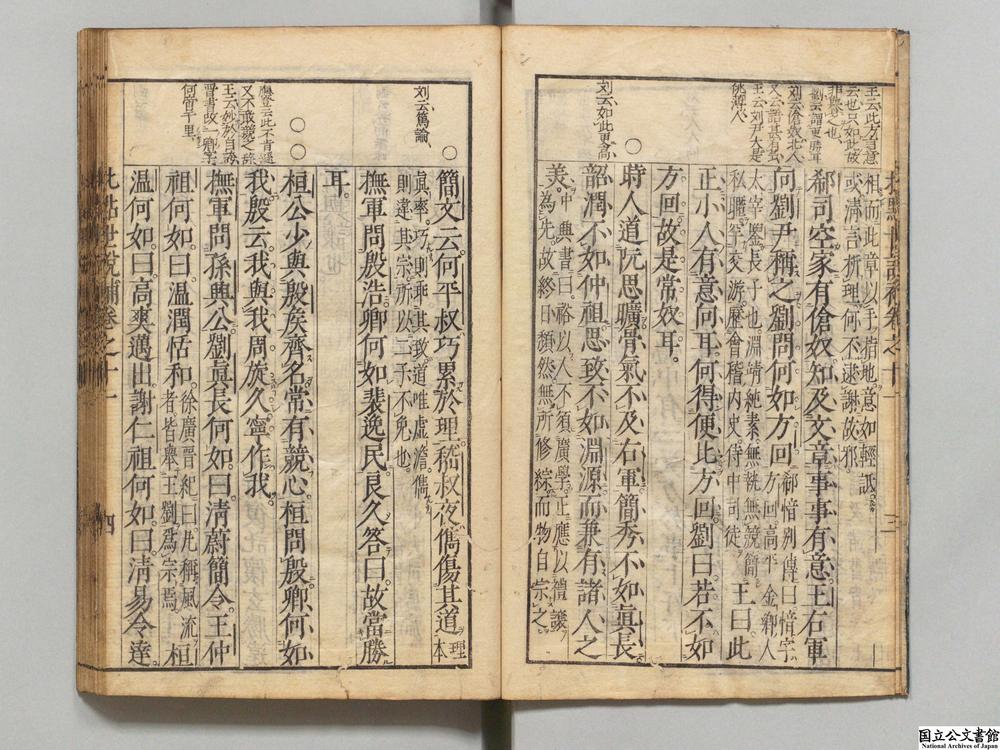 王云此方言意
云也只如此故
非勝之也
劉云謂更勝耳
劉云傖奴北人
又云語甚有
王云劉尹大是
桓而此章以手指地意如輕詆
或清言析理何不逮謝故邪
郗司空家有傖奴知及文章事事有意王右軍
向劉尹稱之劉問何如方回郗愔別傳曰愔字方回高平金鄉人
太宰鑒長子也淵靖純素無執無競簡
私暱罕交游歷會稽内史侍中司徒王曰此
正小人有意向耳何得便比方回劉曰若不如
方回故是常奴耳
劉云如此更高
○時人道阮思曠骨氣不及右軍簡秀不如眞長
韶潤不如仲祖思致不如淵源而兼有諸人之
美中興書曰裕以人不須廣學正應以禮讓
為先故終日頽然無所修綜而物自宗之
批點世說補卷之十一
三
劉云篤論
○簡文云何平叔巧累於理嵇叔夜儁傷其道理本
眞率巧則乖其致道唯虛澹儁
則違其宗所以二子不免也
撫軍問殷浩卿何如裴逸民良久答曰故當勝
耳
又不敢競之
王云妙於自誇
晋書故一卿字
何啻千里
○○桓公少與殷侯齊名常有競心桓問殷卿何如
我殷云我與我周旋久寧作我
撫軍問孫興公劉眞長何如曰清蔚簡令王仲
祖何如曰溫潤恬和徐廣晉紀曰凡稱風流者皆舉王劉為宗焉桓
溫何如曰高爽邁出謝仁祖何如曰清易令達
批點世說補卷之十一
四
国立公文書館
National Archives of Japan